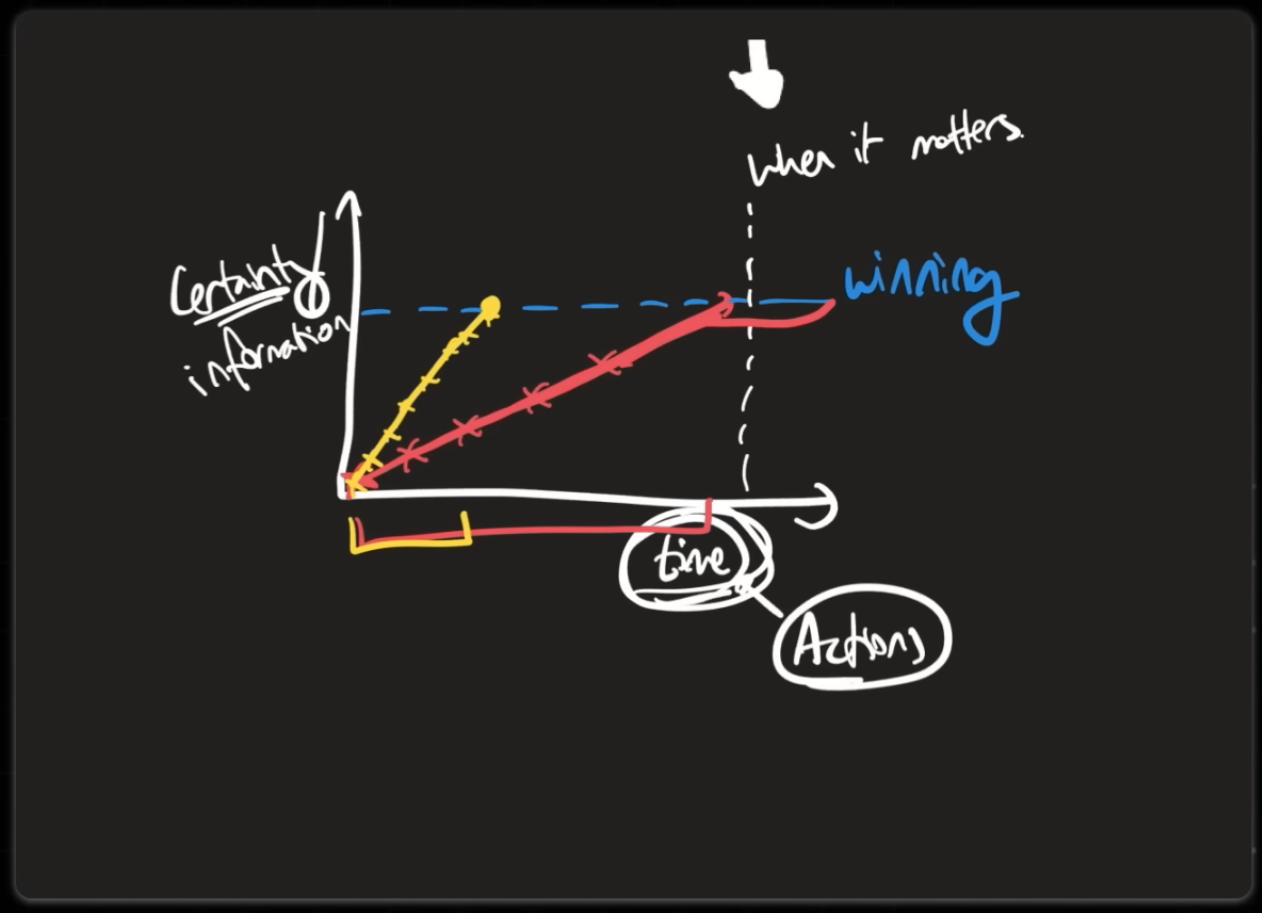 when it matters.
Certainty
information
winning
time
Actions